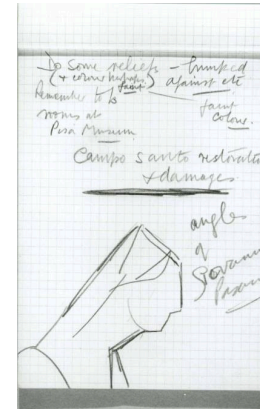 Do some reliefs – bumped
(+ colour perhaps) against etc
faint
Remember to
rooms at
Pisa Museum.
faint
Colour.
Campo Santo restoration
+ damages.
angles
of
Giovanni
Pisano